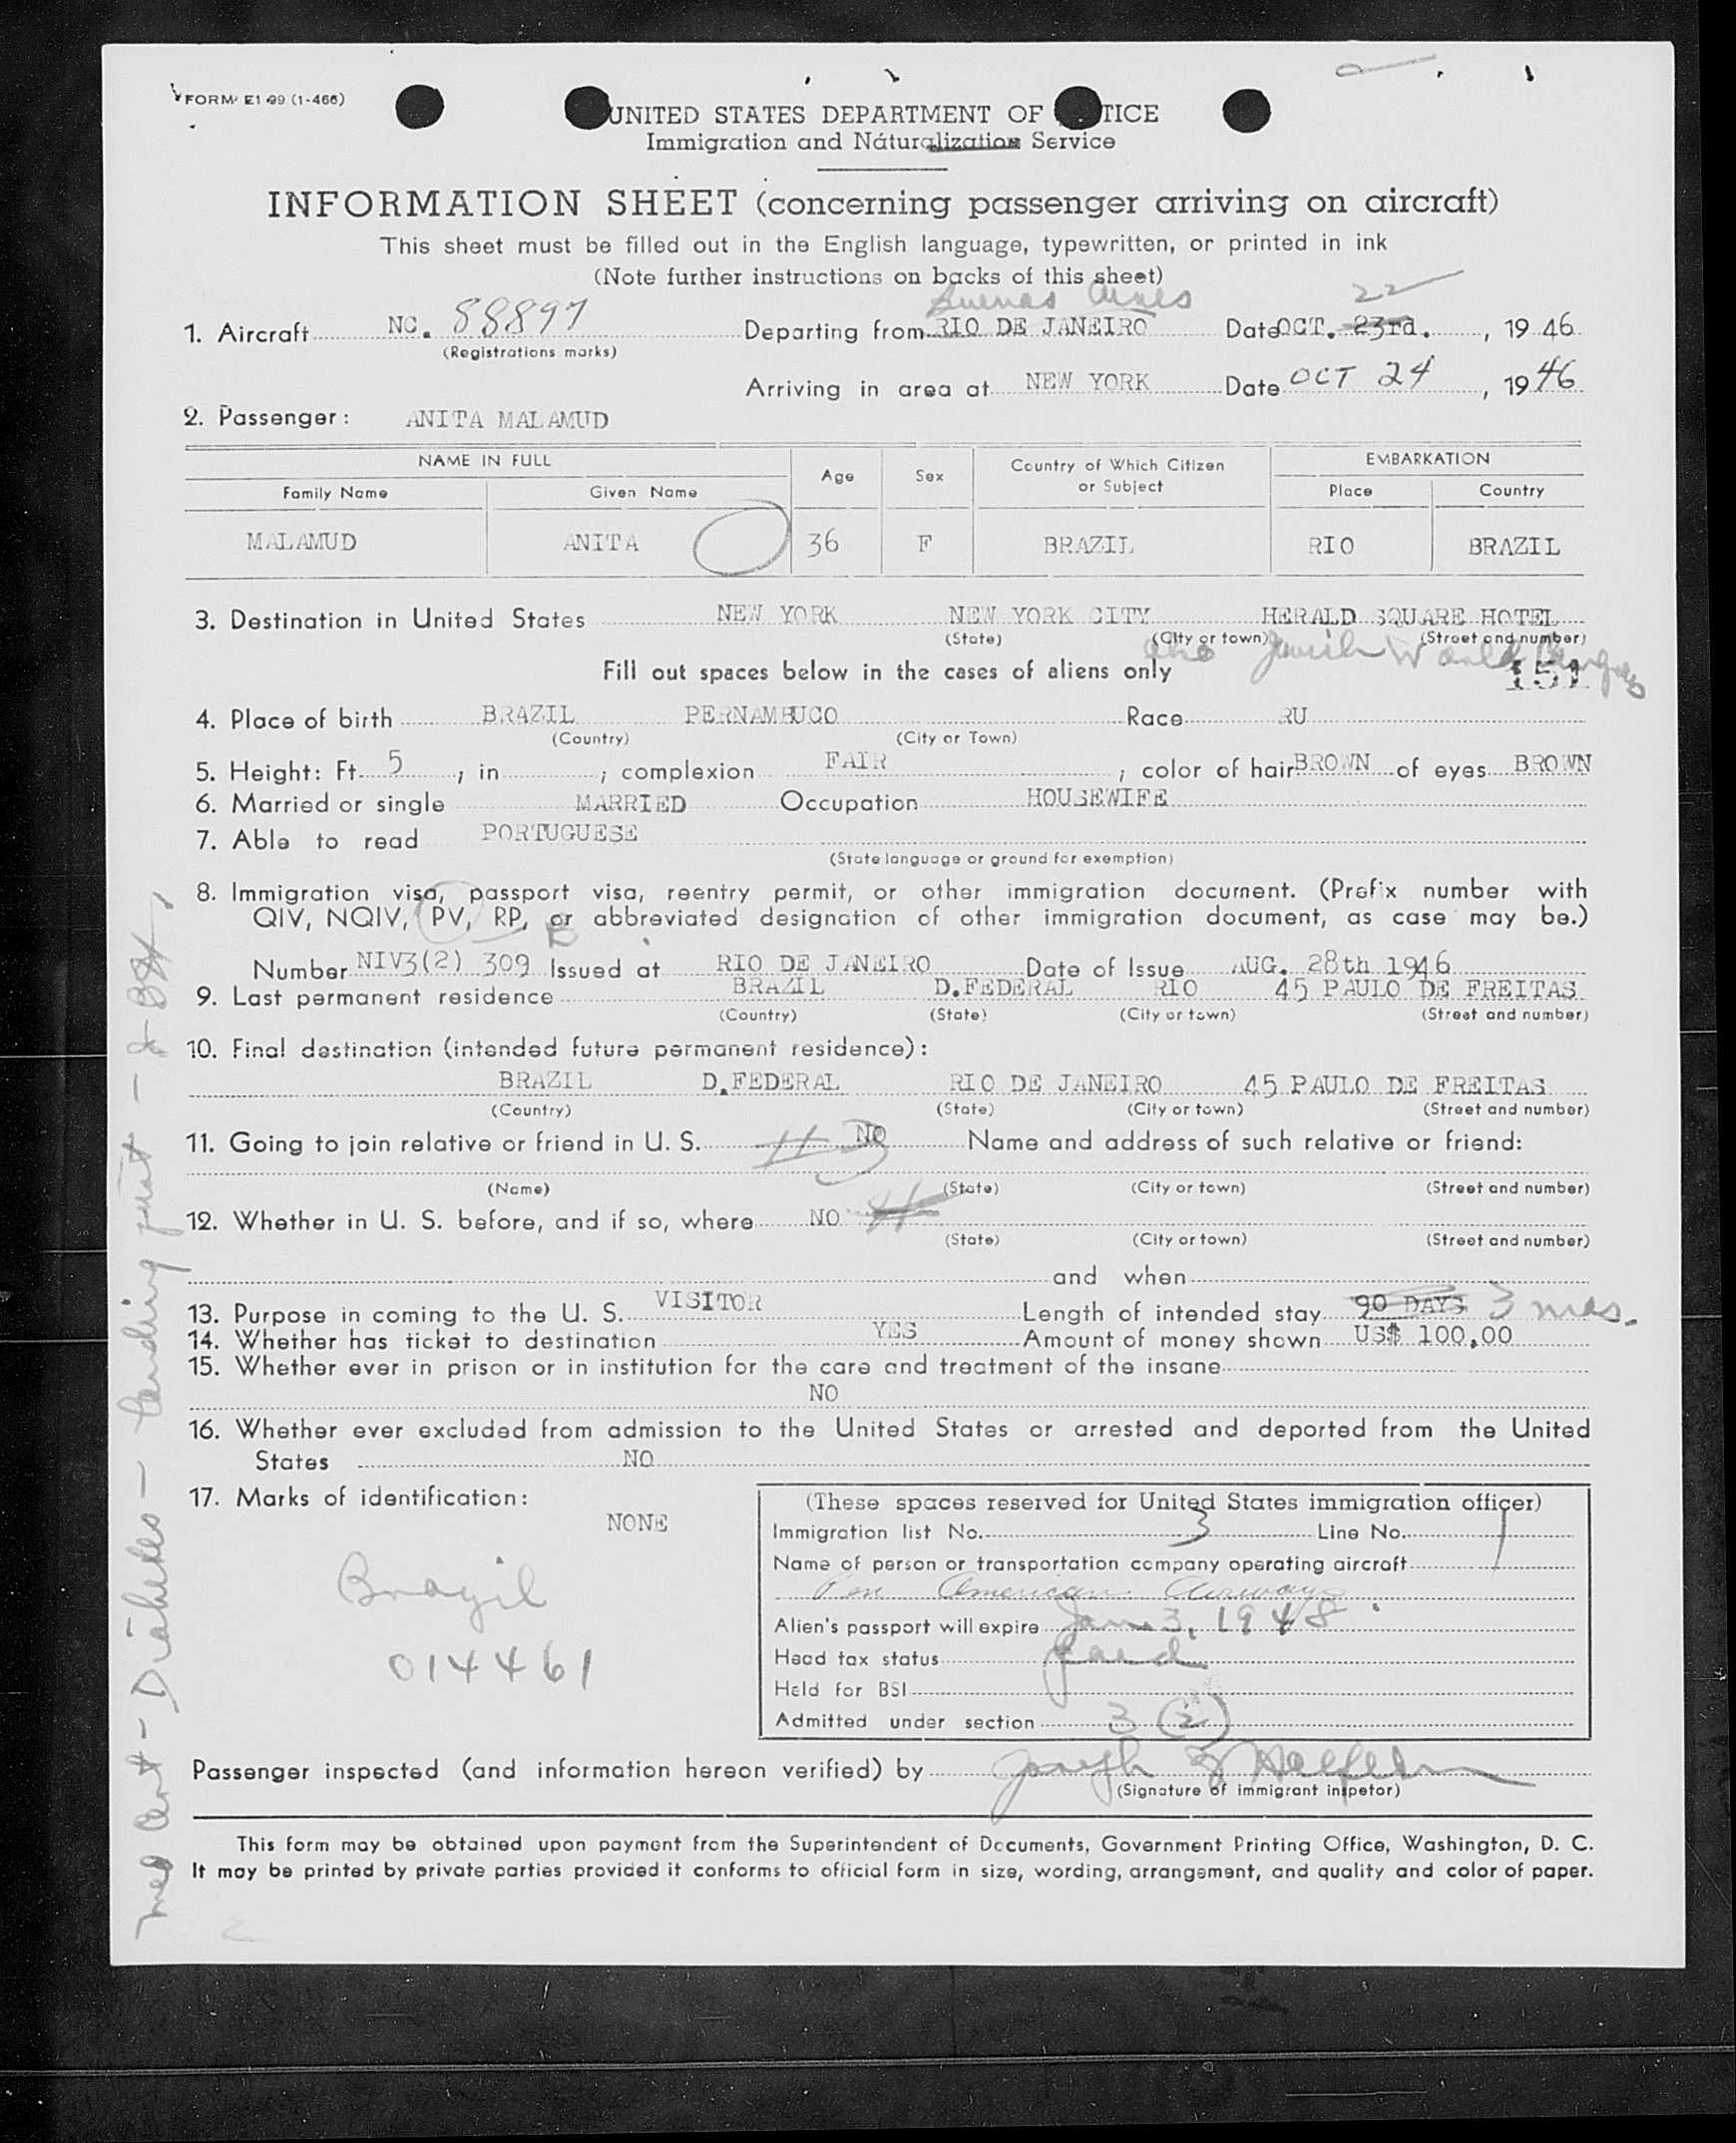 FORM E1 99 (1-466)
UNITED STATES DEPARTMENT OF TICE
Immigration and Naturalization Service
INFORMATION SHEET (concerning passenger arriving on aircraft)
This sheet must be filled out in the English language, typewritten, or printed in ink
(Note further instructions on backs of this sheet)
Buenos Aires 22
1. Aircraft NC. 88897 Departing from RIO DE JANEIRO Date OCT. 23rd. , 19 46
(Registrations marks)
Arriving in area at NEW YORK Date OCT 24 , 19 46
2. Passenger: ANITA MALAMUD
NAME IN FULL Age Sex Country of Which Citizen or Subject EMBARKATION
Family Name Given Name Place Country
MALAMUD ANITA 36 F BRAZIL RIO BRAZIL
3. Destination in United States NEW YORK NEW YORK CITY HERALD SQUARE HOTEL
(State) (City or town) (Street and number)
c/o Jewish World Congress
Fill out spaces below in the cases of aliens only 151
4. Place of birth BRAZIL PERNAMBUCO Race RU
(Country) (City or Town)
5. Height: Ft. 5 ; in ; complexion FAIR ; color of hair BROWN of eyes BROWN
6. Married or single MARRIED Occupation HOUSEWIFE
7. Able to read PORTUGUESE
(State language or ground for exemption)
8. Immigration visa, passport visa, reentry permit, or other immigration document. (Prefix number with
QIV, NQIV, PV, RP, or abbreviated designation of other immigration document, as case may be.)
Number NIV3(2) 309 Issued at RIO DE JANEIRO Date of Issue AUG. 28th 1946
9. Last permanent residence BRAZIL D.FEDERAL RIO 45 PAULO DE FREITAS
(Country) (State) (City or town) (Street and number)
10. Final destination (intended future permanent residence):
BRAZIL D.FEDERAL RIO DE JANEIRO 45 PAULO DE FREITAS
(Country) (State) (City or town) (Street and number)
11. Going to join relative or friend in U. S. NO Name and address of such relative or friend:
(Name) (State) (City or town) (Street and number)
12. Whether in U. S. before, and if so, where NO
(State) (City or town) (Street and number)
and when
13. Purpose in coming to the U. S. VISITOR Length of intended stay 90 DAYS 3 mos.
14. Whether has ticket to destination YES Amount of money shown US$ 100,00
15. Whether ever in prison or in institution for the care and treatment of the insane
NO
16. Whether ever excluded from admission to the United States or arrested and deported from the United
States NO
17. Marks of identification:
NONE
Brazil
014461
(These spaces reserved for United States immigration officer)
Immigration list No. 3 Line No. 1
Name of person or transportation company operating aircraft
Pan American Airways
Alien's passport will expire Jan 3, 1948
Head tax status paid
Held for BSI
Admitted under section 3 (2)
Passenger inspected (and information hereon verified) by Joseph
(Signature of immigrant inspetor)
This form may be obtained upon payment from the Superintendent of Documents, Government Printing Office, Washington, D. C.
It may be printed by private parties provided it conforms to official form in size, wording, arrangement, and quality and color of paper.
med cert - Diabetes -